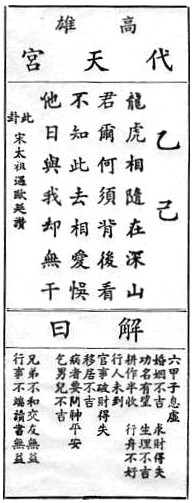 高雄
代天宮
乙己
龍虎相隨在深山
君爾何須背後看
不知此去相愛悞
他日與我却無干
此卦
宋太祖遇歐延讚
解曰
六甲子息虛
婚姻不吉 求財得失
功名有望 生理不吉
耕作半收 行舟不好
行人未到
官事破財得失
移居不吉
病者要問神平安
乞男兒不吉
兄弟不和交友無益
行事不端讀書無益